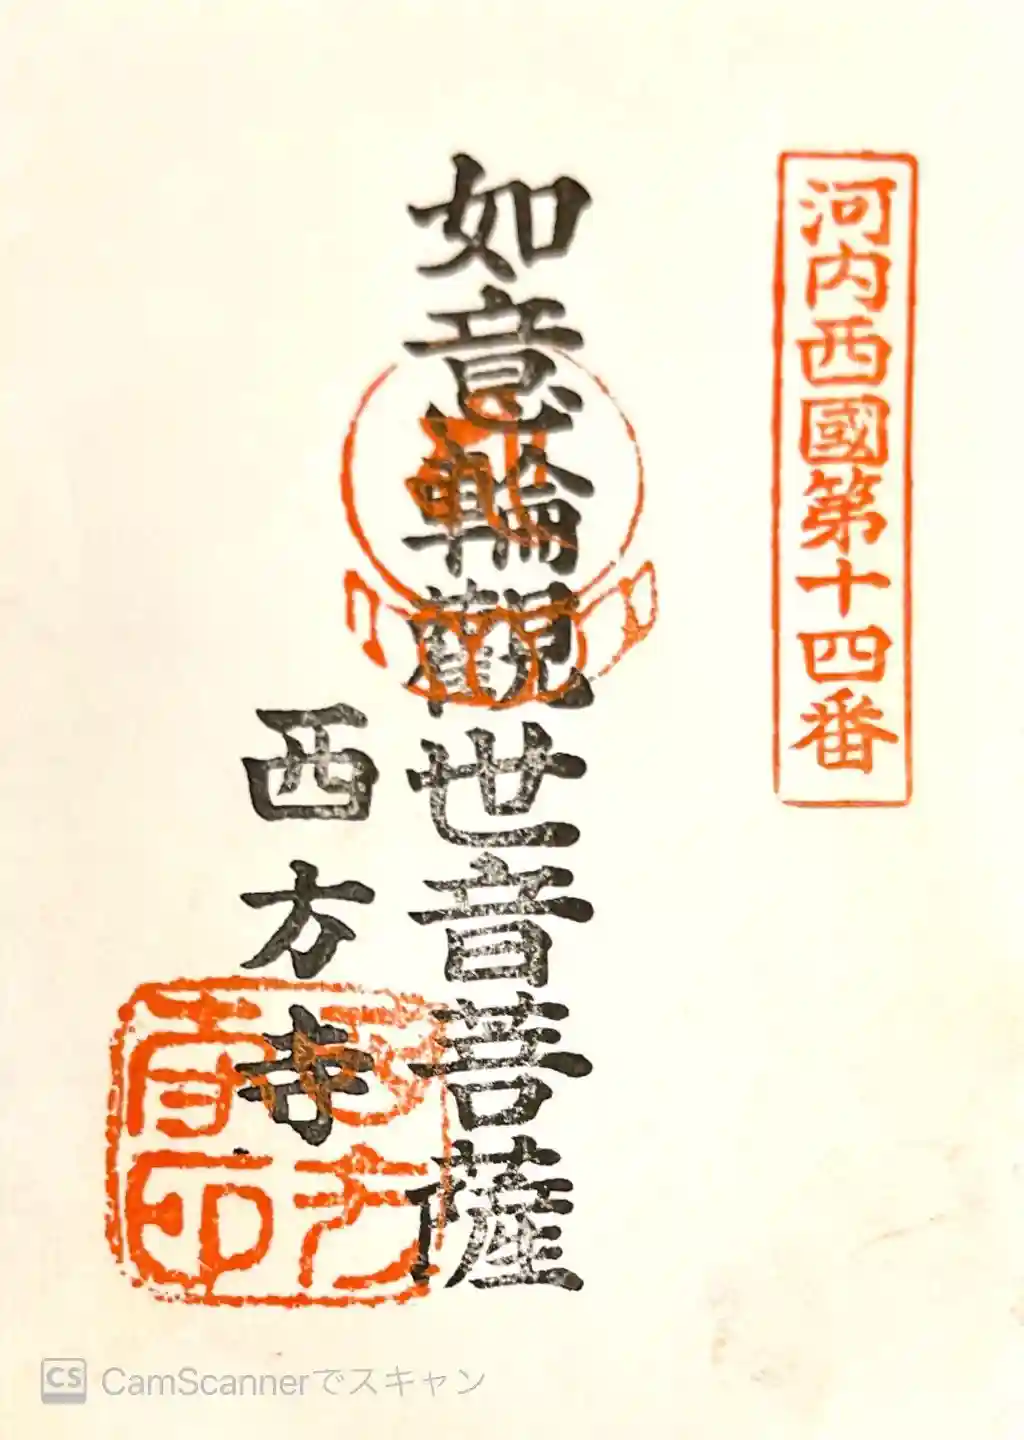 河内西國第十四番
如意輪觀世音菩薩
西方寺
CS CamScannerでスキャン